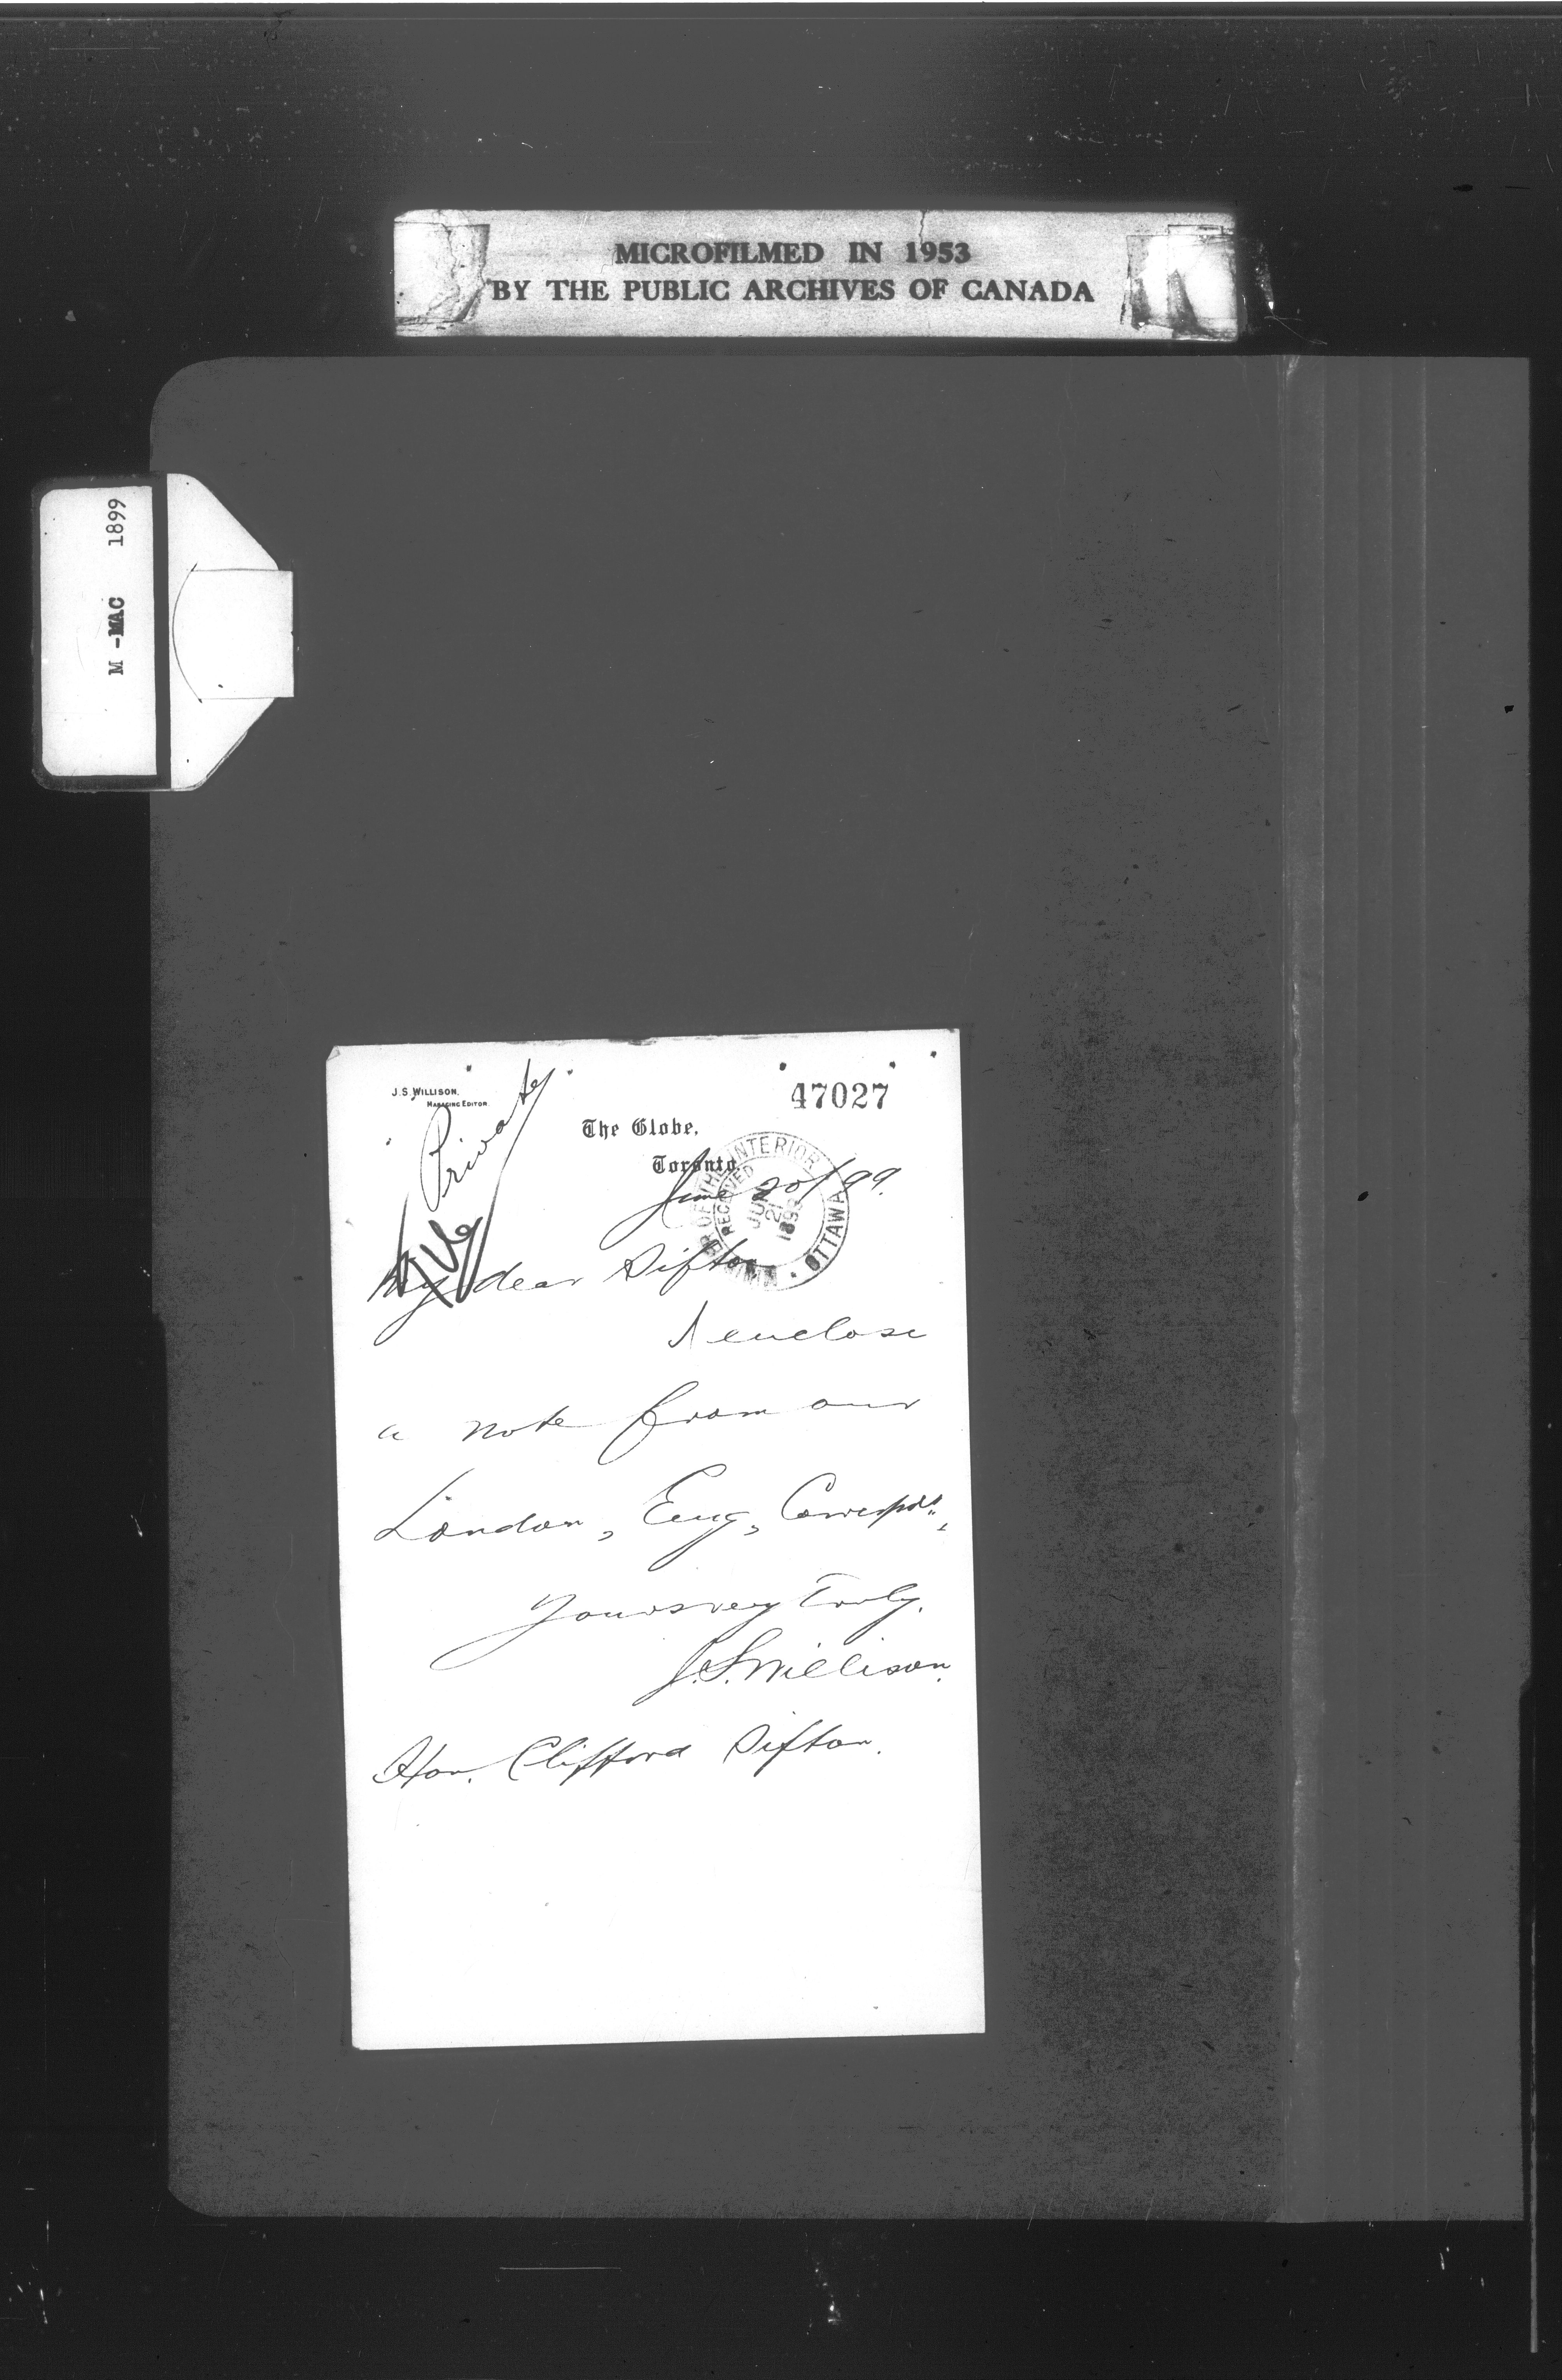 MICROFILMED IN 1953
BY THE PUBLIC ARCHIVES OF CANADA
M -MAC 1899
J.S. WILLISON,
MANAGING EDITOR.
47027
Private
The Globe,
Toronto,
June 20/99.
MINISTER OF THE INTERIOR
RECEIVED
JUN
21
1899
OTTAWA
My dear Sifton
I enclose
a note from our
London, Eng, Correspdt.,
Yours very Truly.
J.S. Willison.
Hon. Clifford Sifton.